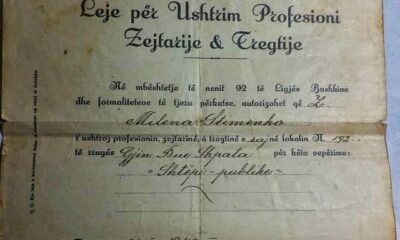 Leje për Ushtrim Profesioni
Zejtarije & Tregtije
Në mbështetje të nenit 92 të Ligjës Bashkive
dhe formaliteteve të tjera përkatse, autorizohet që Z
Milena Stimenko
t'ushtroj profesionin, zejtarinë, a tregtinë e saj në lokalin N. 192
të rrugës Gjin Bue Shpata për këto veprime:
= Shtëpi-publike =